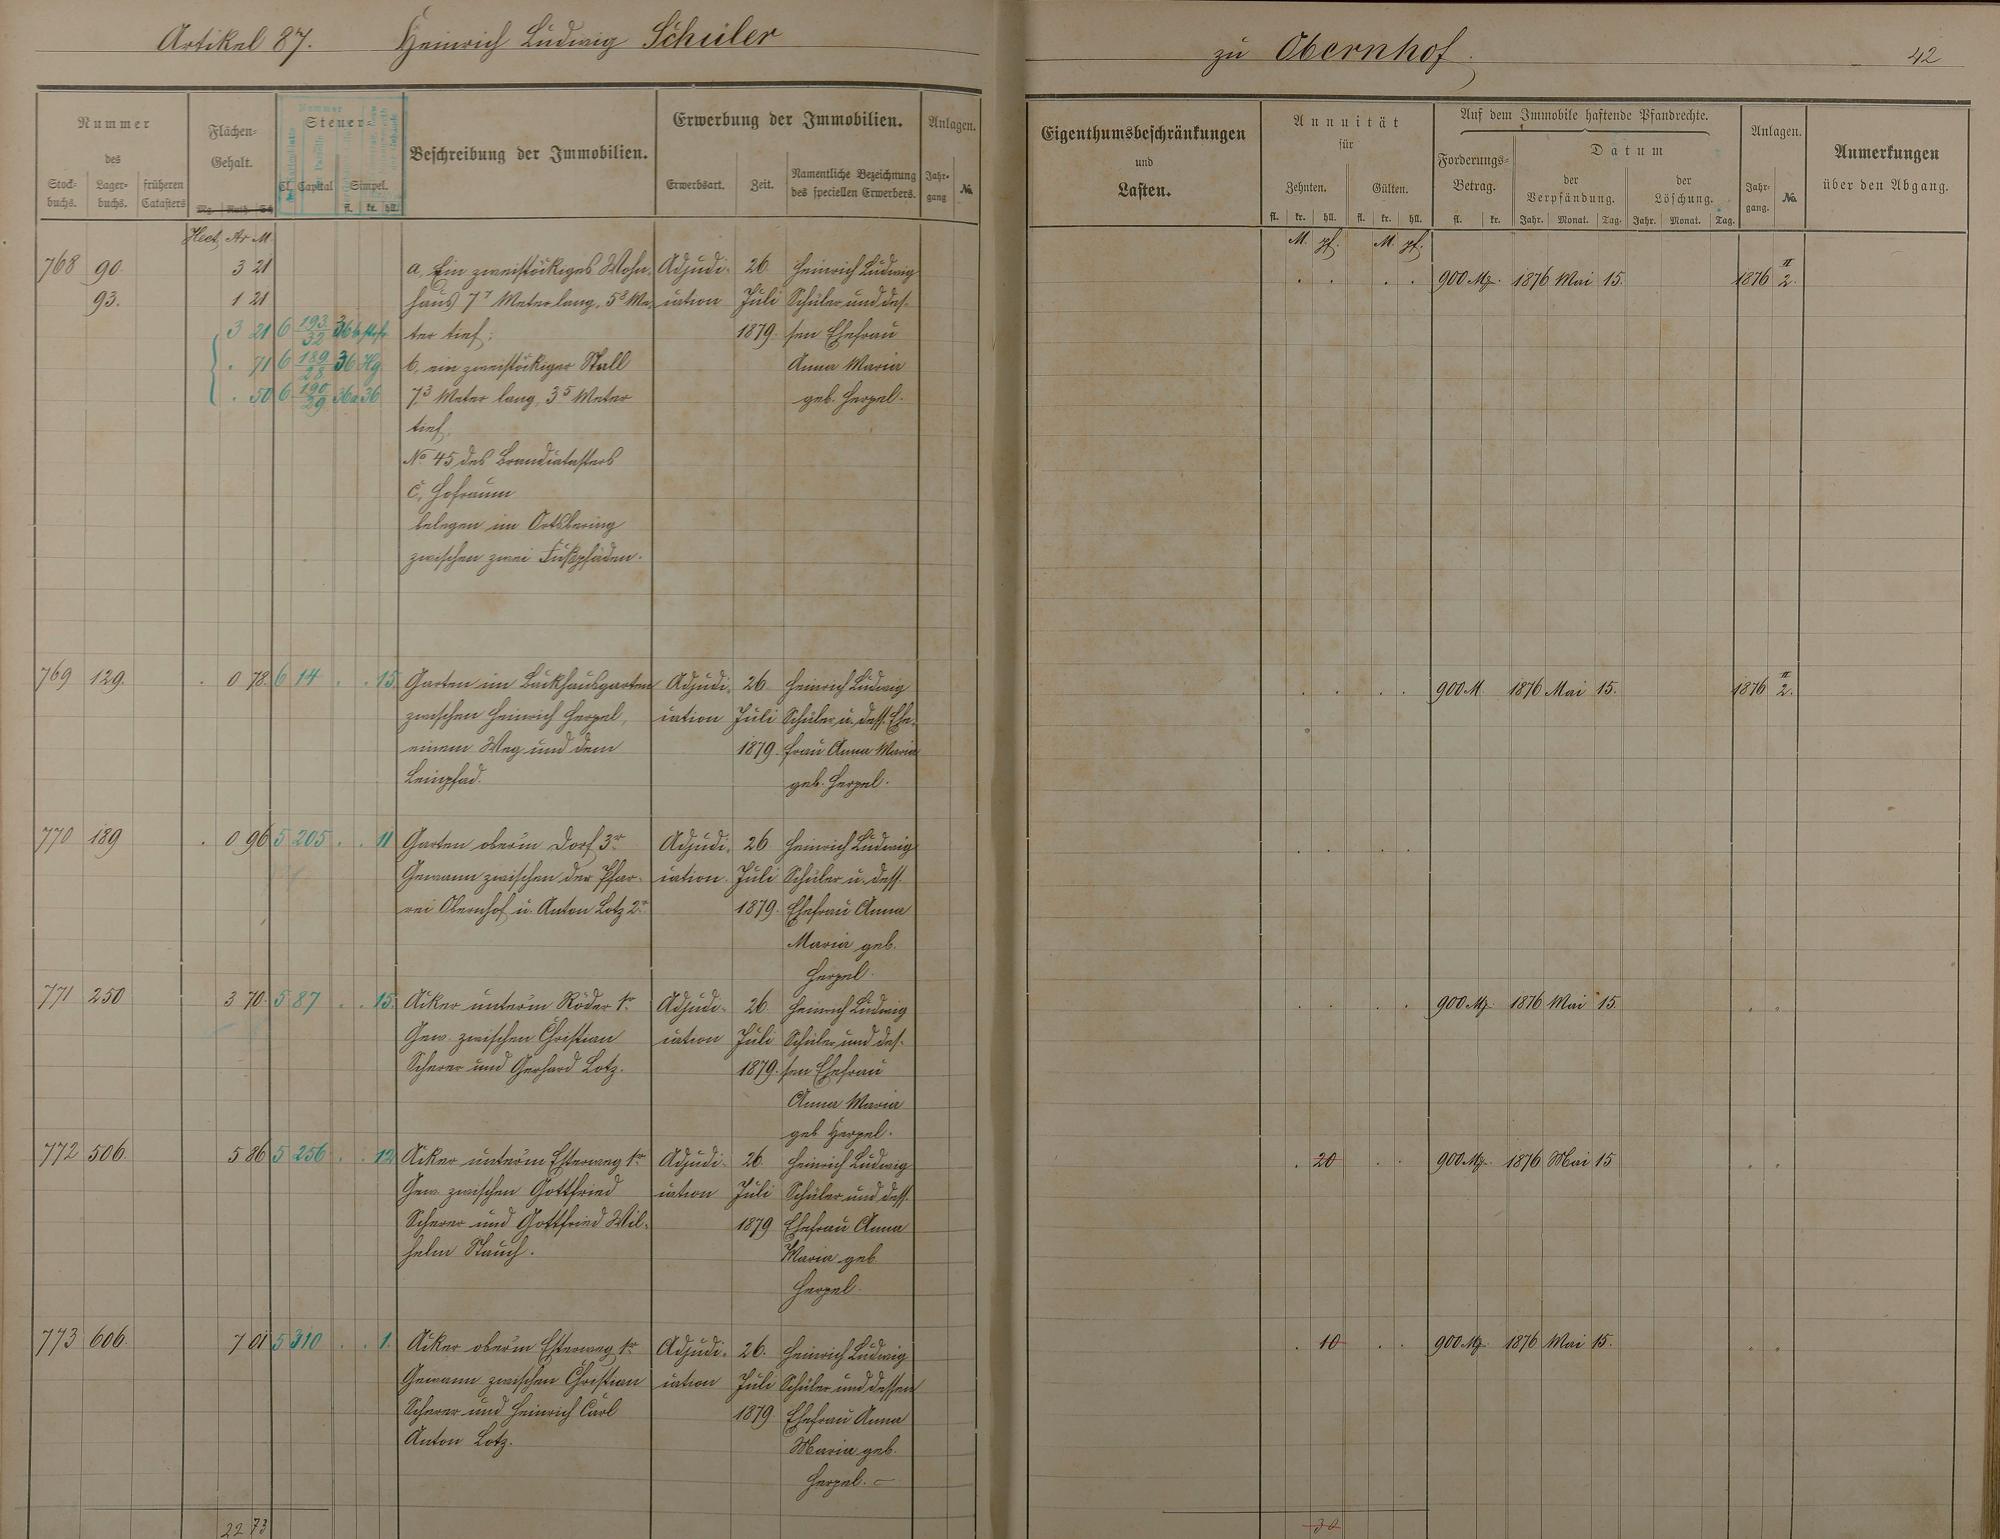 Artikel 87. Heinrich Ludwig Schüler
zu Obernhof.
42
Nummer
des
Stock-
buchs.
Lager-
buchs.
früheren
Catasters
Flächen-
Gehalt.
Mg. Ruth. Sch
Steuer-
Cl. Capital
Simpel.
fl. kr. hll.
Beschreibung der Immobilien.
Erwerbung der Immobilien.
Erwerbsart.
Zeit.
Namentliche Bezeichnung
des speciellen Erwerbers.
Anlagen.
Jahr-
gang
No.
Eigenthumsbeschränkungen
und
Lasten.
Annuität
für
Zehnten.
Gülten.
fl. kr. hll. fl. kr. hll.
Auf dem Immobile haftende Pfandrechte.
Forderungs-
Betrag.
fl. kr.
Datum
der
Verpfändung.
Jahr. Monat. Tag.
der
Löschung.
Jahr. Monat. Tag.
Anlagen.
Jahr-
gang.
No.
Anmerkungen
über den Abgang.
Hect. Ar M.
M. pf. M. pf.
768 90. 3 21 a, Ein zweistöckiges Wohn- Adjudi- 26 Heinrich Ludwig
93. 1 21 haus 7⁷ Meter lang, 5⁸ Me- cation Juli Schüler und des-
3 21 6 193/32 36 ter tief; 1879. sen Ehefrau
. 71 6 189/28 36 Hg b, ein zweistöckiger Stall Anna Maria
. 50 6 190/29 36a 36 7³ Meter lang, 3⁵ Meter geb. Herpel.
tief,
No 45 des Brandcatasters
c, Hofraum
belegen im Ortsbering
zwischen zwei Fußpfäden.
900 Mk. 1876 Mai 15. 1876 II 2.
769 129. . 0 78. 6 14 . . 15. Garten im Backhausgarten Adjudi- 26 Heinrich Ludwig
zwischen Heinrich Herpel, cation Juli Schüler u. dess. Ehe-
einem Weg und dem 1879. frau Anna Maria
Leinpfad. geb. Herpel.
900 M. 1876 Mai 15. 1876 II 2.
770 189 . 0 96 5 205 . . 11 Garten ober'm Dorf 3r Adjudi- 26 Heinrich Ludwig
Gewann zwischen der Pfar- cation. Juli Schüler u. dess.
rei Obernhof u. Anton Lotz 2r. 1879. Ehefrau Anna
Maria geb.
Herpel.
771 250 3 70. 5 87 . . 15. Acker unter'm Röder 1r. Adjudi- 26 Heinrich Ludwig
Gew. zwischen Christian cation Juli Schüler und des-
Scherer und Gerhard Lotz. 1879. sen Ehefrau
Anna Maria
geb Herpel.
900 Mk. 1876 Mai 15
772 506. 5 86 5 256 . . 12 Acker unter'm Esterweg 1r Adjudi- 26 Heinrich Ludwig
Gew. zwischen Gottfried cation Juli Schüler und dess.
Scherer und Gottfried Wil- 1879 Ehefrau Anna
helm Stauch. Maria geb
Herpel.
. 20 . . 900 Mk. 1876 Mai 15
773 606. 7 01 5 310 . . 1. Acker ober'm Esterweg 1r Adjudi- 26. Heinrich Ludwig
Gewann zwischen Christian cation Juli Schüler und dessen
Scherer und Heinrich Carl 1879 Ehefrau Anna
Anton Lotz. Maria geb.
Herpel. –
. 10 . . 900 Mk. 1876 Mai 15.
22 73
30